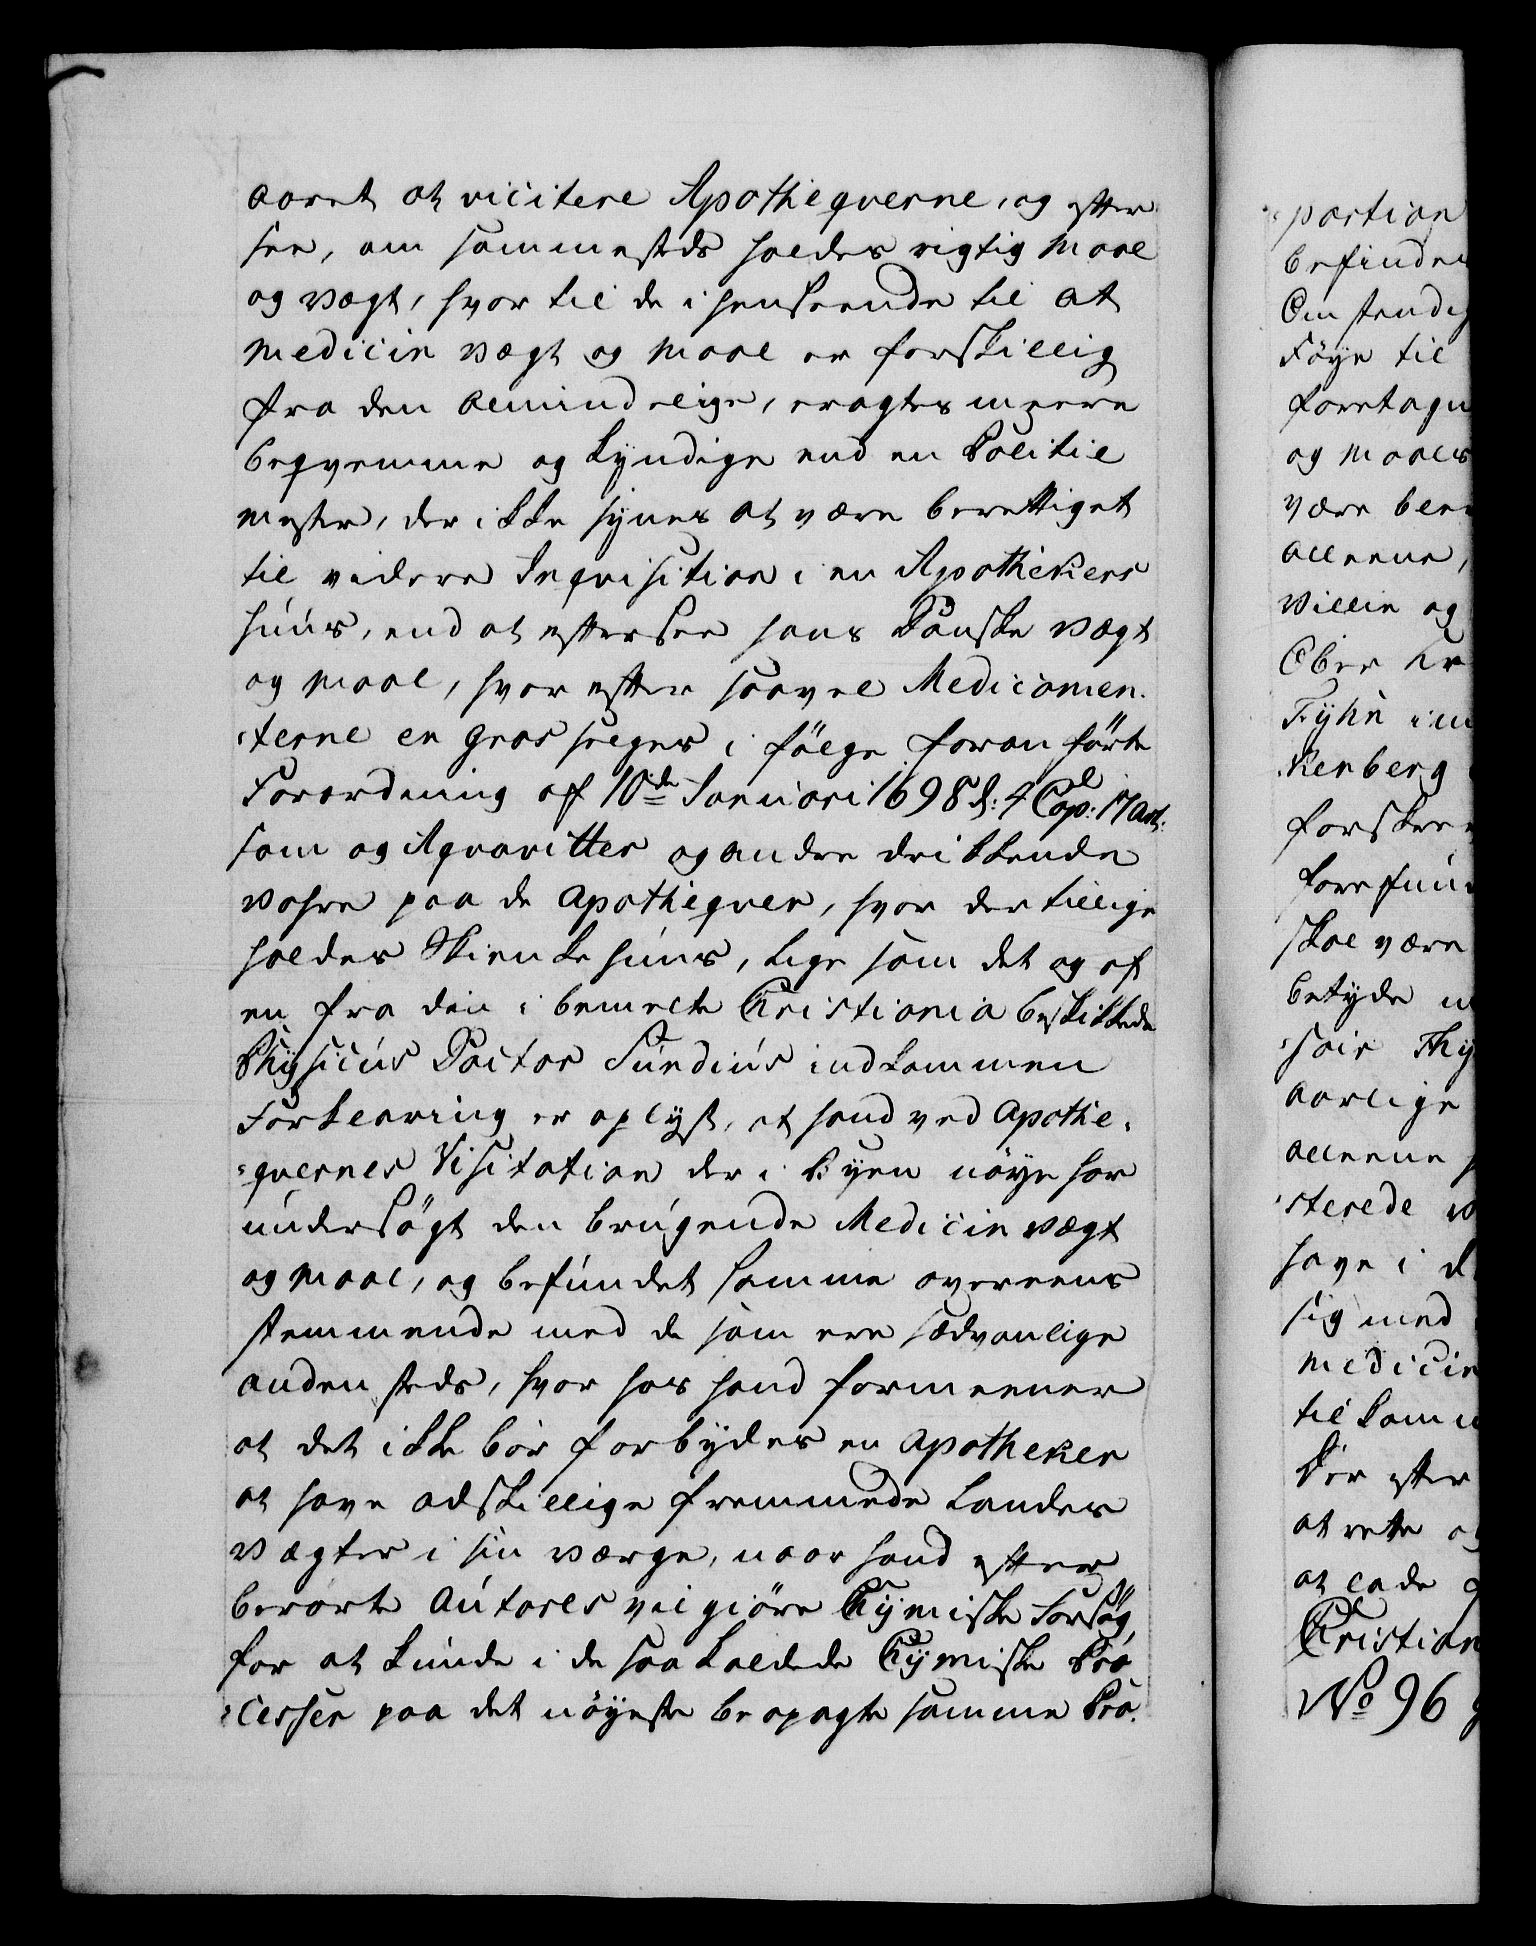 aaret at vicitere Apothequerne, og efter
see, om sammesteds holdes rigtig Maal
og vægt, hvor til de i henseende til at
Medicin vægt og Maal er forskillig
fra den almindelige, eragtes meere
beqvemme og kyndige end en Politie
mester, der ikke synes at være berettiget
til videre Inqvisition i en Apothekers
huus, end at eftersee hans Danske vægt
og Maal, hvor efter saavel Medicamen-
terne en gros selges i fölge foran förte
Forordning af 10de Januari 1698 d: 4 Cap: 17 Art:
som og Aqvavitter og andre drikkende
vahre paa de Apothequer, hvor der tillige
holdes Skienke huus, lige som det og af
en fra den i bemelte Christiania beskikkede
Physicus Doctor Sundius indkommen
Forklaring er oplyst, at hand ved Apothe-
quernes Visitation der i Byen nöye har
undersögt den brugende Medicin vægt
og Maal, og befundet samme overeens
stemmende med de som ere sædvanlige
anden steds, hvor hos hand formeener
at det ikke bör forbydes en Apotheker
at have adskillige fremmede Landes
vægter i sin værge, naar hand efter
berörte Autores vil giöre Chymiske Forsög,
for at kunde i de saa kaldede Chymiske Pro-
cesser paa det nöyeste beopagte samme Pro-
portion
befinden
Omstendig
Föye til
foretagn
og Maals
være
alleene,
villie og
Ober
Fyhn
kenberg
forskre
forefun
skal være
betyde
soir Thy
aarlige
alleene
sterede
have i d
sig med
Medicin
til kom
Der efter
at rette og
at lade
Christian
No 96